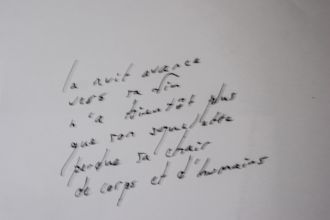 la nuit avance
vers sa fin
n'a bientôt plus
que son squelette
perdue sa chair
de corps et d'humains